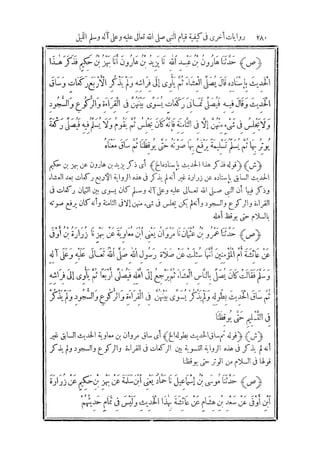 ٢٨٠ روايات أخرى فى كيفية قيام النبى صلى الله تعالى عليه وعلى آله وسلم الليل
﴿ص﴾ حَدَّثَنَا هَارُونُ بْنُ عَبْدِ اللهِ نَا يَزِيدُ بْنُ هَارُونَ أَنَا بَهْزُ بْنُ حَكِيمٍ فَذَكَرَ هٰذَا
الْحَدِيثَ بِإِسْنَادِهِ قَالَ يُصَلِّى الْعِشَاءَ ثُمَّ يَأْوِى إِلَى فِرَاشِهِ وَلَمْ يَذْكُرِ الْأَرْبَعَ رَكَعَاتٍ وَسَاقَ
الْحَدِيثَ وَقَالَ فِيهِ فَيُصَلِّى ثَمَانَ رَكَعَاتٍ يُسَوِّى بَيْنَهُنَّ فِى الْقِرَاءَةِ وَالرُّكُوعِ وَالسُّجُودِ
وَلَا يَجْلِسُ فِى شَىْءٍ مِنْهُنَّ إِلَّا فِى الثَّامِنَةِ فَإِنَّهُ كَانَ يَجْلِسُ ثُمَّ يَقُومُ وَلَا يُسَلِّمُ فِيهِ فَيُصَلِّى رَكْعَةً
يُوتِرُ بِهَا ثُمَّ يُسَلِّمُ تَسْلِيمَةً يَرْفَعُ بِهَا صَوْتَهُ حَتَّى يُوقِظَنَا ثُمَّ سَاقَ مَعْنَاهُ
﴿ش﴾ ﴿قوله فذكر هذا الحديث بإسناده الخ﴾ أى ذكر يزيد بن هارون عن بهز بن حكيم
الحديث السابق بإسناده عن زرارة غير أنه لم يذكر فى هذه الرواية الأربع ركعات بعد العشاء
وذكر فيها أن النبى صلى الله تعالى عليه وعلى آله وسلم كان يسوى بين الثمان ركعات فى
القراءة والركوع والسجود وأنه لم يكن يجلس فى شىء منهن إلا فى الثامنة وأنه كان يرفع صوته
بالسلام حتى يوقظ أهله
﴿ص﴾ حَدَّثَنَا عُمَرُ بْنُ عُثْمَانَ نَا مَرْوَانُ يَعْنِى ابْنَ مُعَاوِيَةَ عَنْ بَهْزٍ نَا زُرَارَةُ بْنُ أَوْفَى
عَنْ عَائِشَةَ أُمِّ الْمُؤْمِنِينَ أَنَّهَا سُئِلَتْ عَنْ صَلَاةِ رَسُولِ اللهِ صَلَّى اللهُ تَعَالَى عَلَيْهِ وَعَلَى آلِهِ
وَسَلَّمَ فَقَالَتْ كَانَ يُصَلِّى بِالنَّاسِ الْعِشَاءَ ثُمَّ يَرْجِعُ إِلَى أَهْلِهِ فَيُصَلِّى أَرْبَعًا ثُمَّ يَأْوِى إِلَى فِرَاشِهِ
ثُمَّ سَاقَ الْحَدِيثَ بِطُولِهِ وَلَمْ يَذْكُرْ يُسَوِّى بَيْنَهُنَّ فِى الْقِرَاءَةِ وَالرُّكُوعِ وَالسُّجُودِ وَلَمْ يَذْكُرْ
فِى التَّسْلِيمِ حَتَّى يُوقِظَنَا
﴿ش﴾ ﴿قوله ثم ساق الحديث بطوله الخ﴾ أى ساق مروان بن معاوية الحديث السابق غير
أنه لم يذكر فى هذه الرواية التسوية بين الركعات فى القراءة والركوع والسجود ولم يذكر
قولها فى السلام من الوتر حتى يوقظنا
﴿ص﴾ حَدَّثَنَا مُوسَى بْنُ إِسْمَاعِيلَ نَا حَمَّادٌ يَعْنِى ابْنَ سَلَمَةَ عَنْ بَهْزِ بْنِ حَكِيمٍ عَنْ زُرَارَةَ
ابْنِ أَوْفَى عَنْ سَعْدِ بْنِ هِشَامٍ عَنْ عَائِشَةَ بِهٰذَا الْحَدِيثِ وَلَيْسَ فِى تَمَامِ حَدِيثِهِمْ